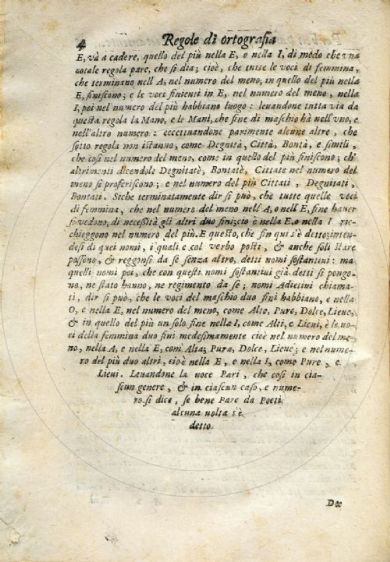 4 Regole di ortografia
E, và a cadere, quello del più nella E, o nella I, di modo che vna
cotale regola pare, che si dia; cioè, che tutte le voci di femmina,
che terminano nell A, nel numero del meno, in quello del più nella
E, finiscono; e le voce finienti in E, nel numero del meno, nella
I, poi nel numero del più habbiano luogo: leuandone tutta via da
questa regola la Mano, e le Mani, che fine di maschio hà nell'vno, e
nell'altro numero: eccettuandone parimente alcune altre, che
sotto regola non istanno, come Degnità, Città, Bontà, e simili,
che così nel numero del meno, come in quello del più finiscono; ch'
altrimenti dicendole Degnitate, Bontate, Cittate nel numero del
meno si proferiscono; e nel numero del più Cittati, Degnitati,
Bontati. Siche terminatamente dir si può, che tutte quelle voci
di femmina, che nel numero del meno nell' A, o nell E, fine hauer
si vedano, di necessità gli altri due finiscio è nella E, o nella I ri-
chieggono nel numero del più. E questo, che fin quì s'è detto; inten-
desi di quei nomi, i quali e col verbo posti, & anche soli stare
possono, & reggonsi da se senza altro, detti nomi sostantiui: ma
quelli nomi poi, che con questi nomi sostantiui già detti si pongo-
no, ne stato hanno, ne regimento da sè; nomi Adiettiui chiama-
ti, dir si può, che le voci del maschio duo fini habbiano, e nella
O, e nella E, nel numero del meno, come Alto, Puro, Dolce, Lieue,
& in quello del più un solo fine nella I, come Alti, e Lieui, e le uo-
ci della femmina duo fini medesimamente cioè nel numero del me-
no, nella A, e nella E, com Alta; Pura, Dolce, Lieue; e nel nume-
ro del più duo altri, cioè nella E, e nella I, come Pure, e
Lieui. Leuandone la uoce Pari, che così in cia-
scun genere, & in ciascun caso, e nume-
ro si dice, se bene Pare da Poeti
alcuna uolta s'è
detto.